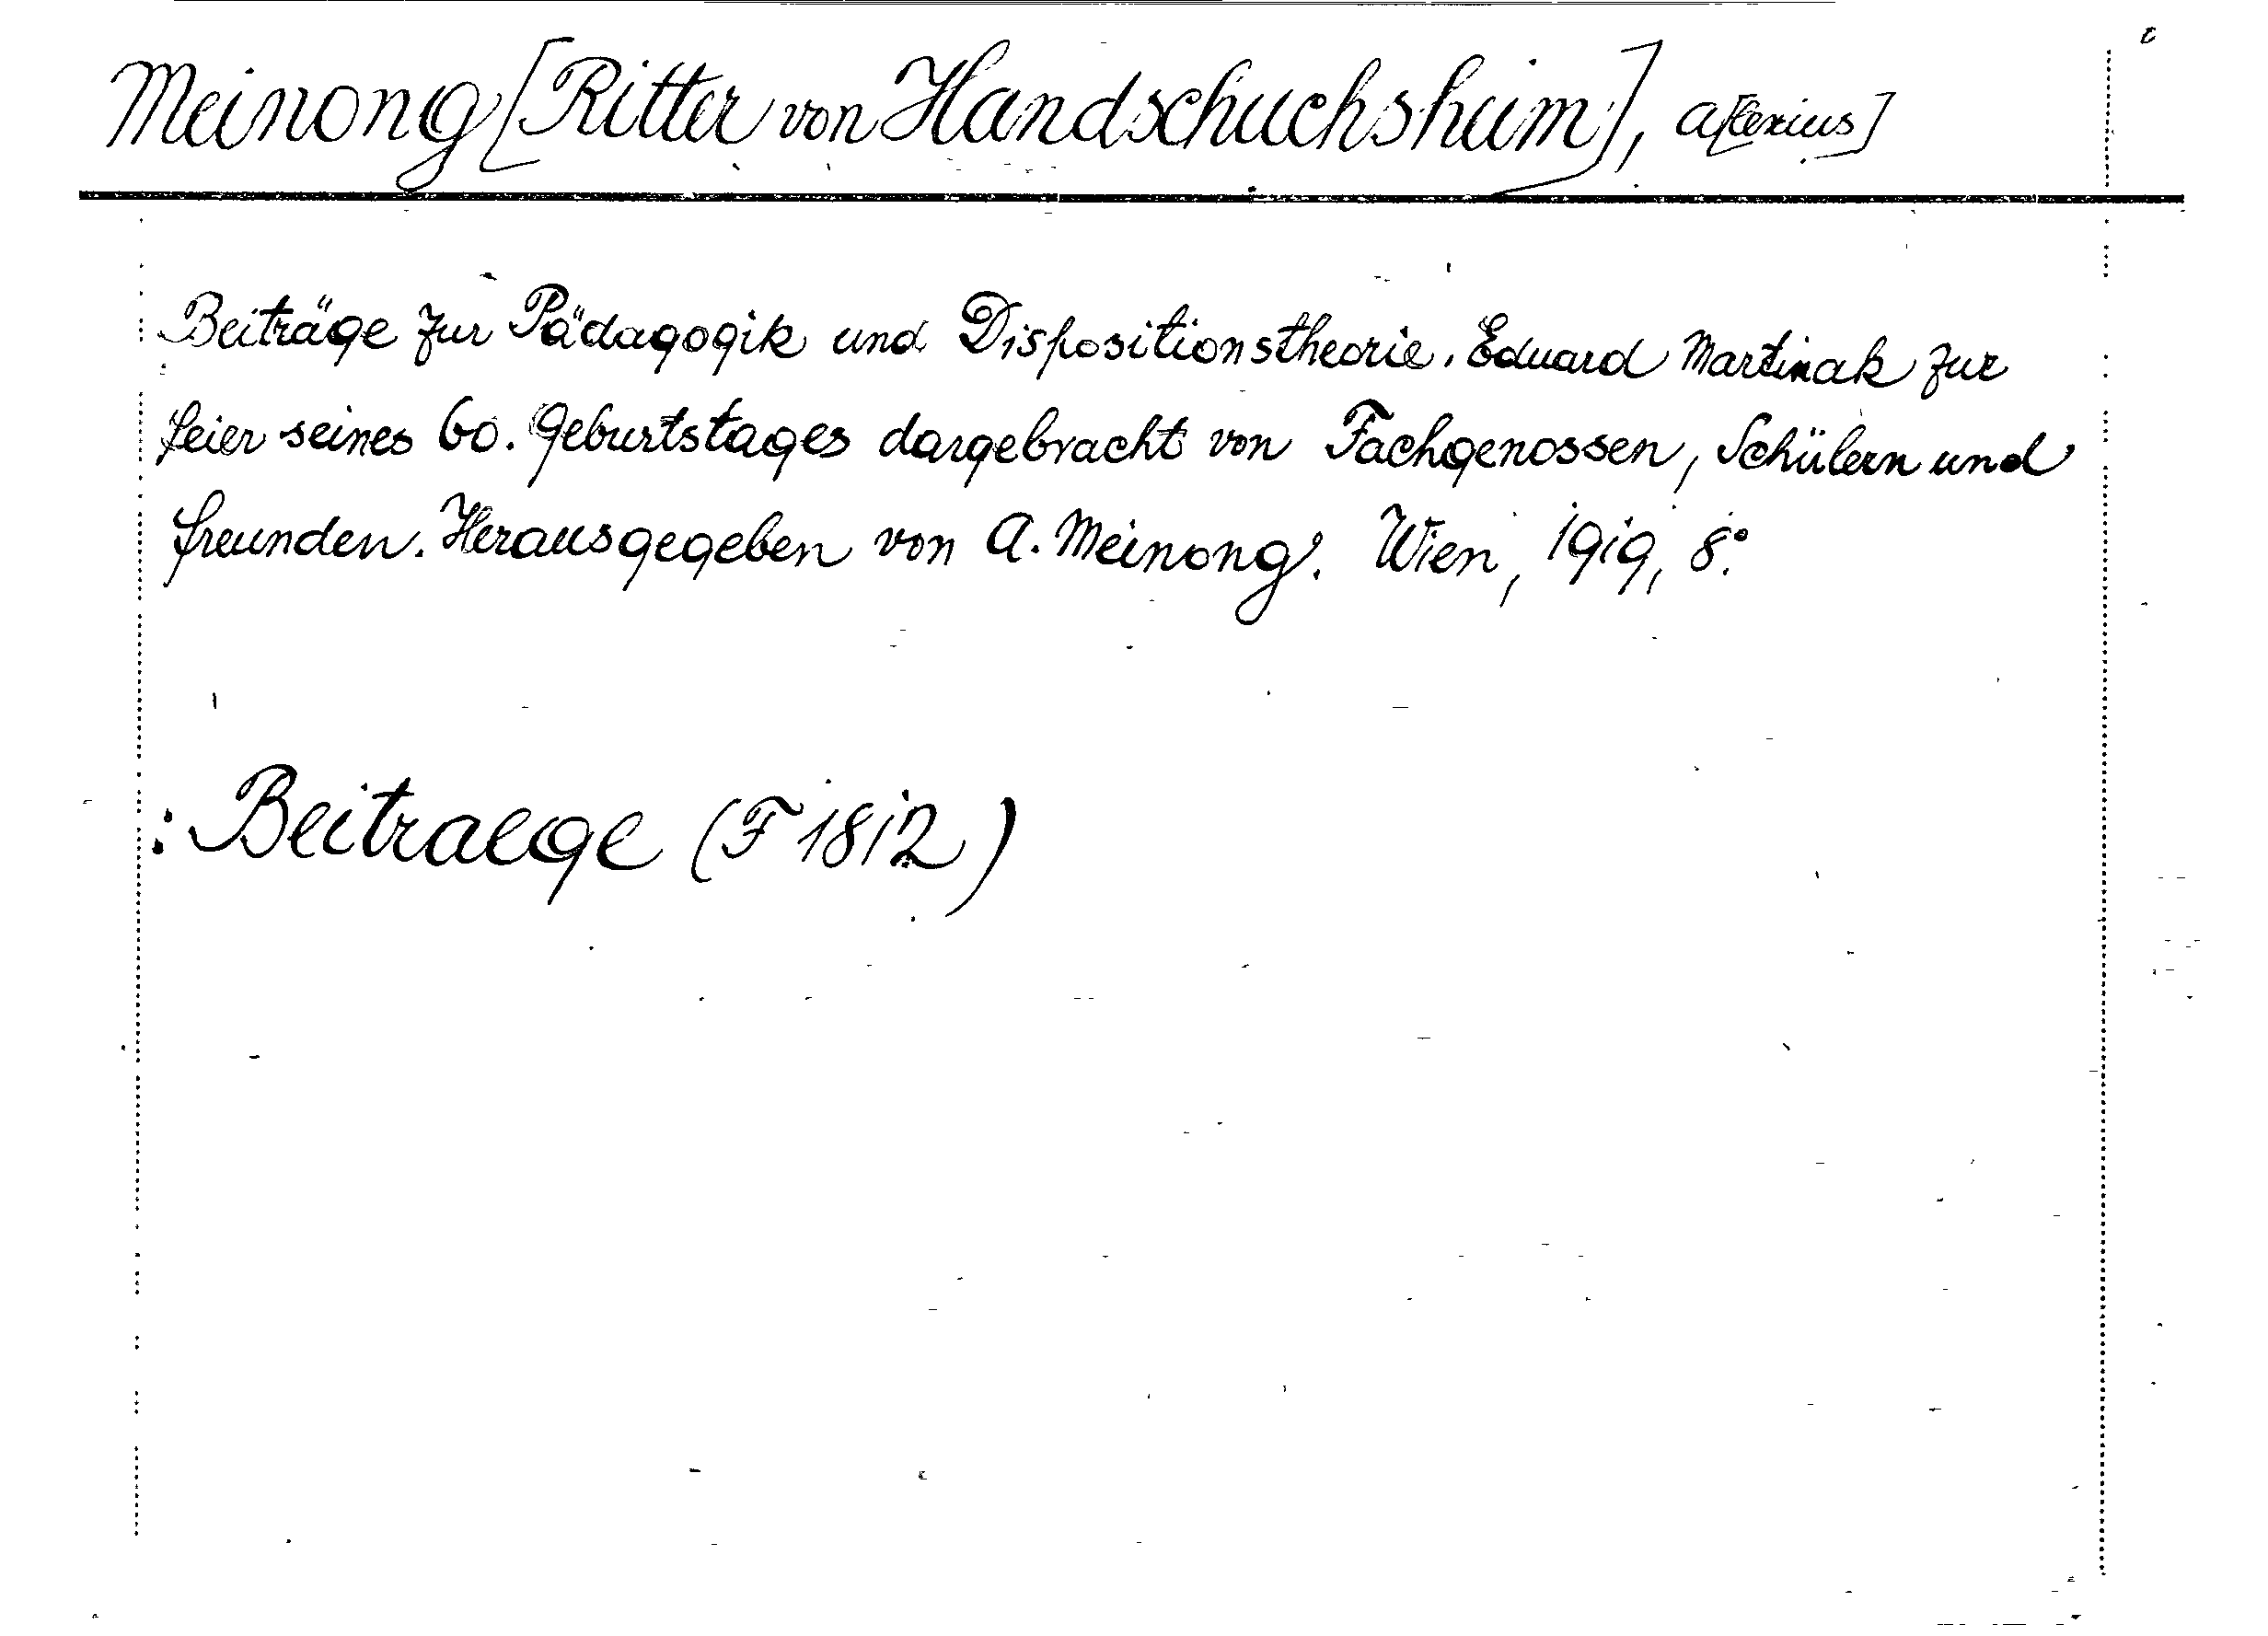 Meinong [Ritter von Handschuchsheim], A[lexius]
Beiträge zur Pädagogik und Dispositionstheorie. Eduard Martinak zur
Feier seines 60. Geburtstages dargebracht von Fachgenossen, Schülern und
Freunden. Herausgegeben von A. Meinong. Wien, 1919, 8.°
: Beitraege (F 1812)